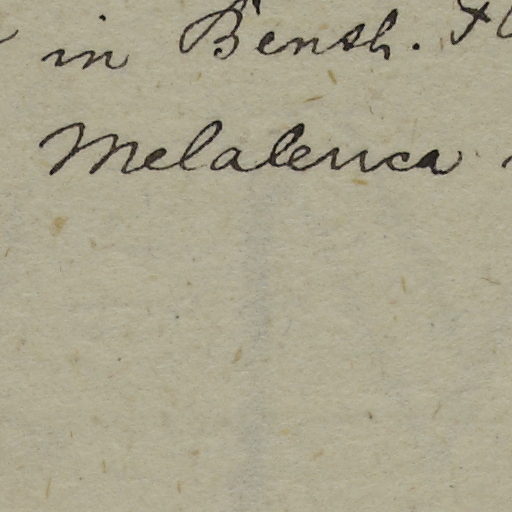 in Benth. Fl
Melaleuca